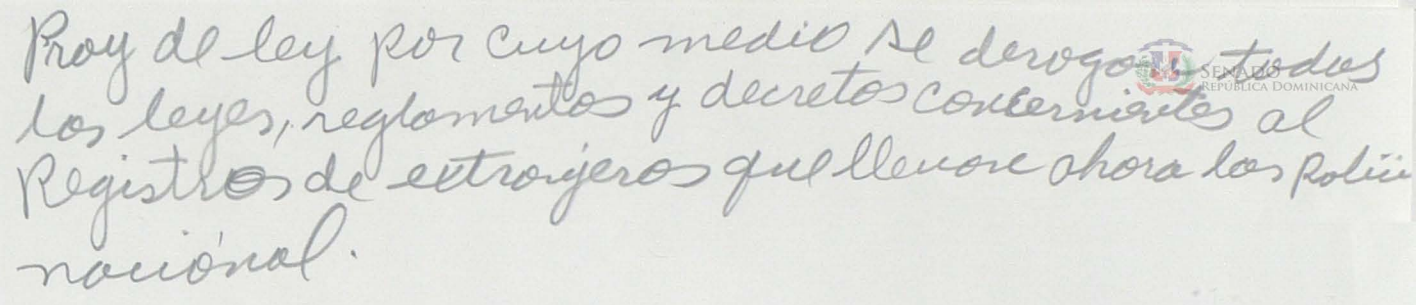 Proy de ley por cuyo medio se derogan todas
las leyes, reglamentos y decretos concernientes al
Registros de extranjeros que llevare ahora las
nacional.
SENADO
REPÚBLICA DOMINICANA